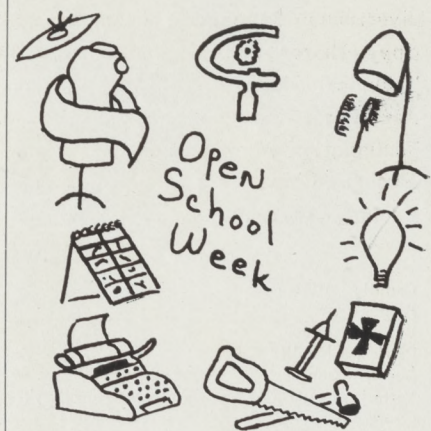 Open
School
Week